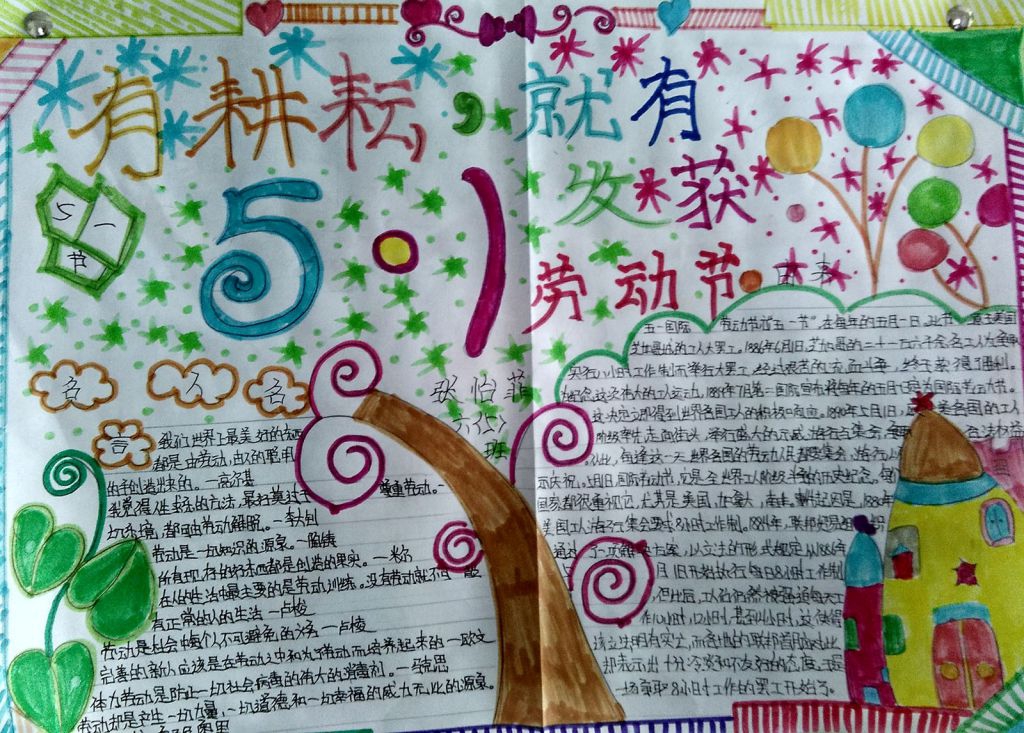 有耕耘,就有
发获
5·1
劳动节
由来
五一
节
名人名
言
张怡菲
六(2)
班
我们世界上最美好的东西
都是由劳动、由人的聪明
的手创造出来的。—高尔基
我觉得人生求乐的方法,最好莫过于尊重劳动。一
切乐境,都可由劳动得来,一切苦
境,都可由劳动解脱。—李大钊
劳动是一切知识的源泉。—陶铸
所有现存的好东西都是创造的果实。—米尔
在人的生活中最主要的是劳动训练。没有劳动就不可能
有正常的人的生活—卢梭
劳动是社会中每个人不可避免的义务—卢梭
完善的新人应该是在劳动之中和为了劳动而培养起来的—欧文
体力劳动是防止一切社会病毒的伟大的消毒剂。—马克思
劳动却是产生一切力量、一切道德和一切幸福的威力无比的源泉。
五一国际劳动节亦"五一节",在每年的五月一日。
芝加哥城的工人大罢工。1886年5月1日,芝加哥的二十一万六千余名工人为争取
实行八小时工作制而举行大罢工,经过艰苦的流血斗争,终于获得了胜利。
为纪念这次伟大的工人运动,1889年7月第二国际宣布将每年的五月一日定为国际劳动节。
这一决定立即得到世界各国工人的积极响应。1890年5月1日,欧美各国的工人
阶级率先走向街头,举行盛大的示威游行与集会,争取合法权益
。从此,每逢这一天世界各国的劳动人民都要集会、游行,以
示庆祝。
国家都很重视它,尤其是美国、加拿大、南非。
美国工人游行集会要求8小时工作制。1884年,
通过了一项解决方案,以立法的形式规定从1886年
5月1日开始执行每日8小时工作制
,但此后,工人们仍然被强迫每天工
作10小时、12小时,甚至14小时,这使得
该立法明存实亡,而各地的联邦首脑对此
却表示出十分冷漠和不友好的态度,于是
一场争取8小时工作的罢工开始了。